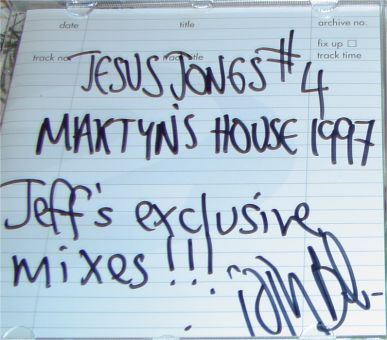 date title archive no.
fix up
track no. track title track time
JESUS JONES #4
MARTYN'S HOUSE 1997
Jeff's exclusive
mixes !!!